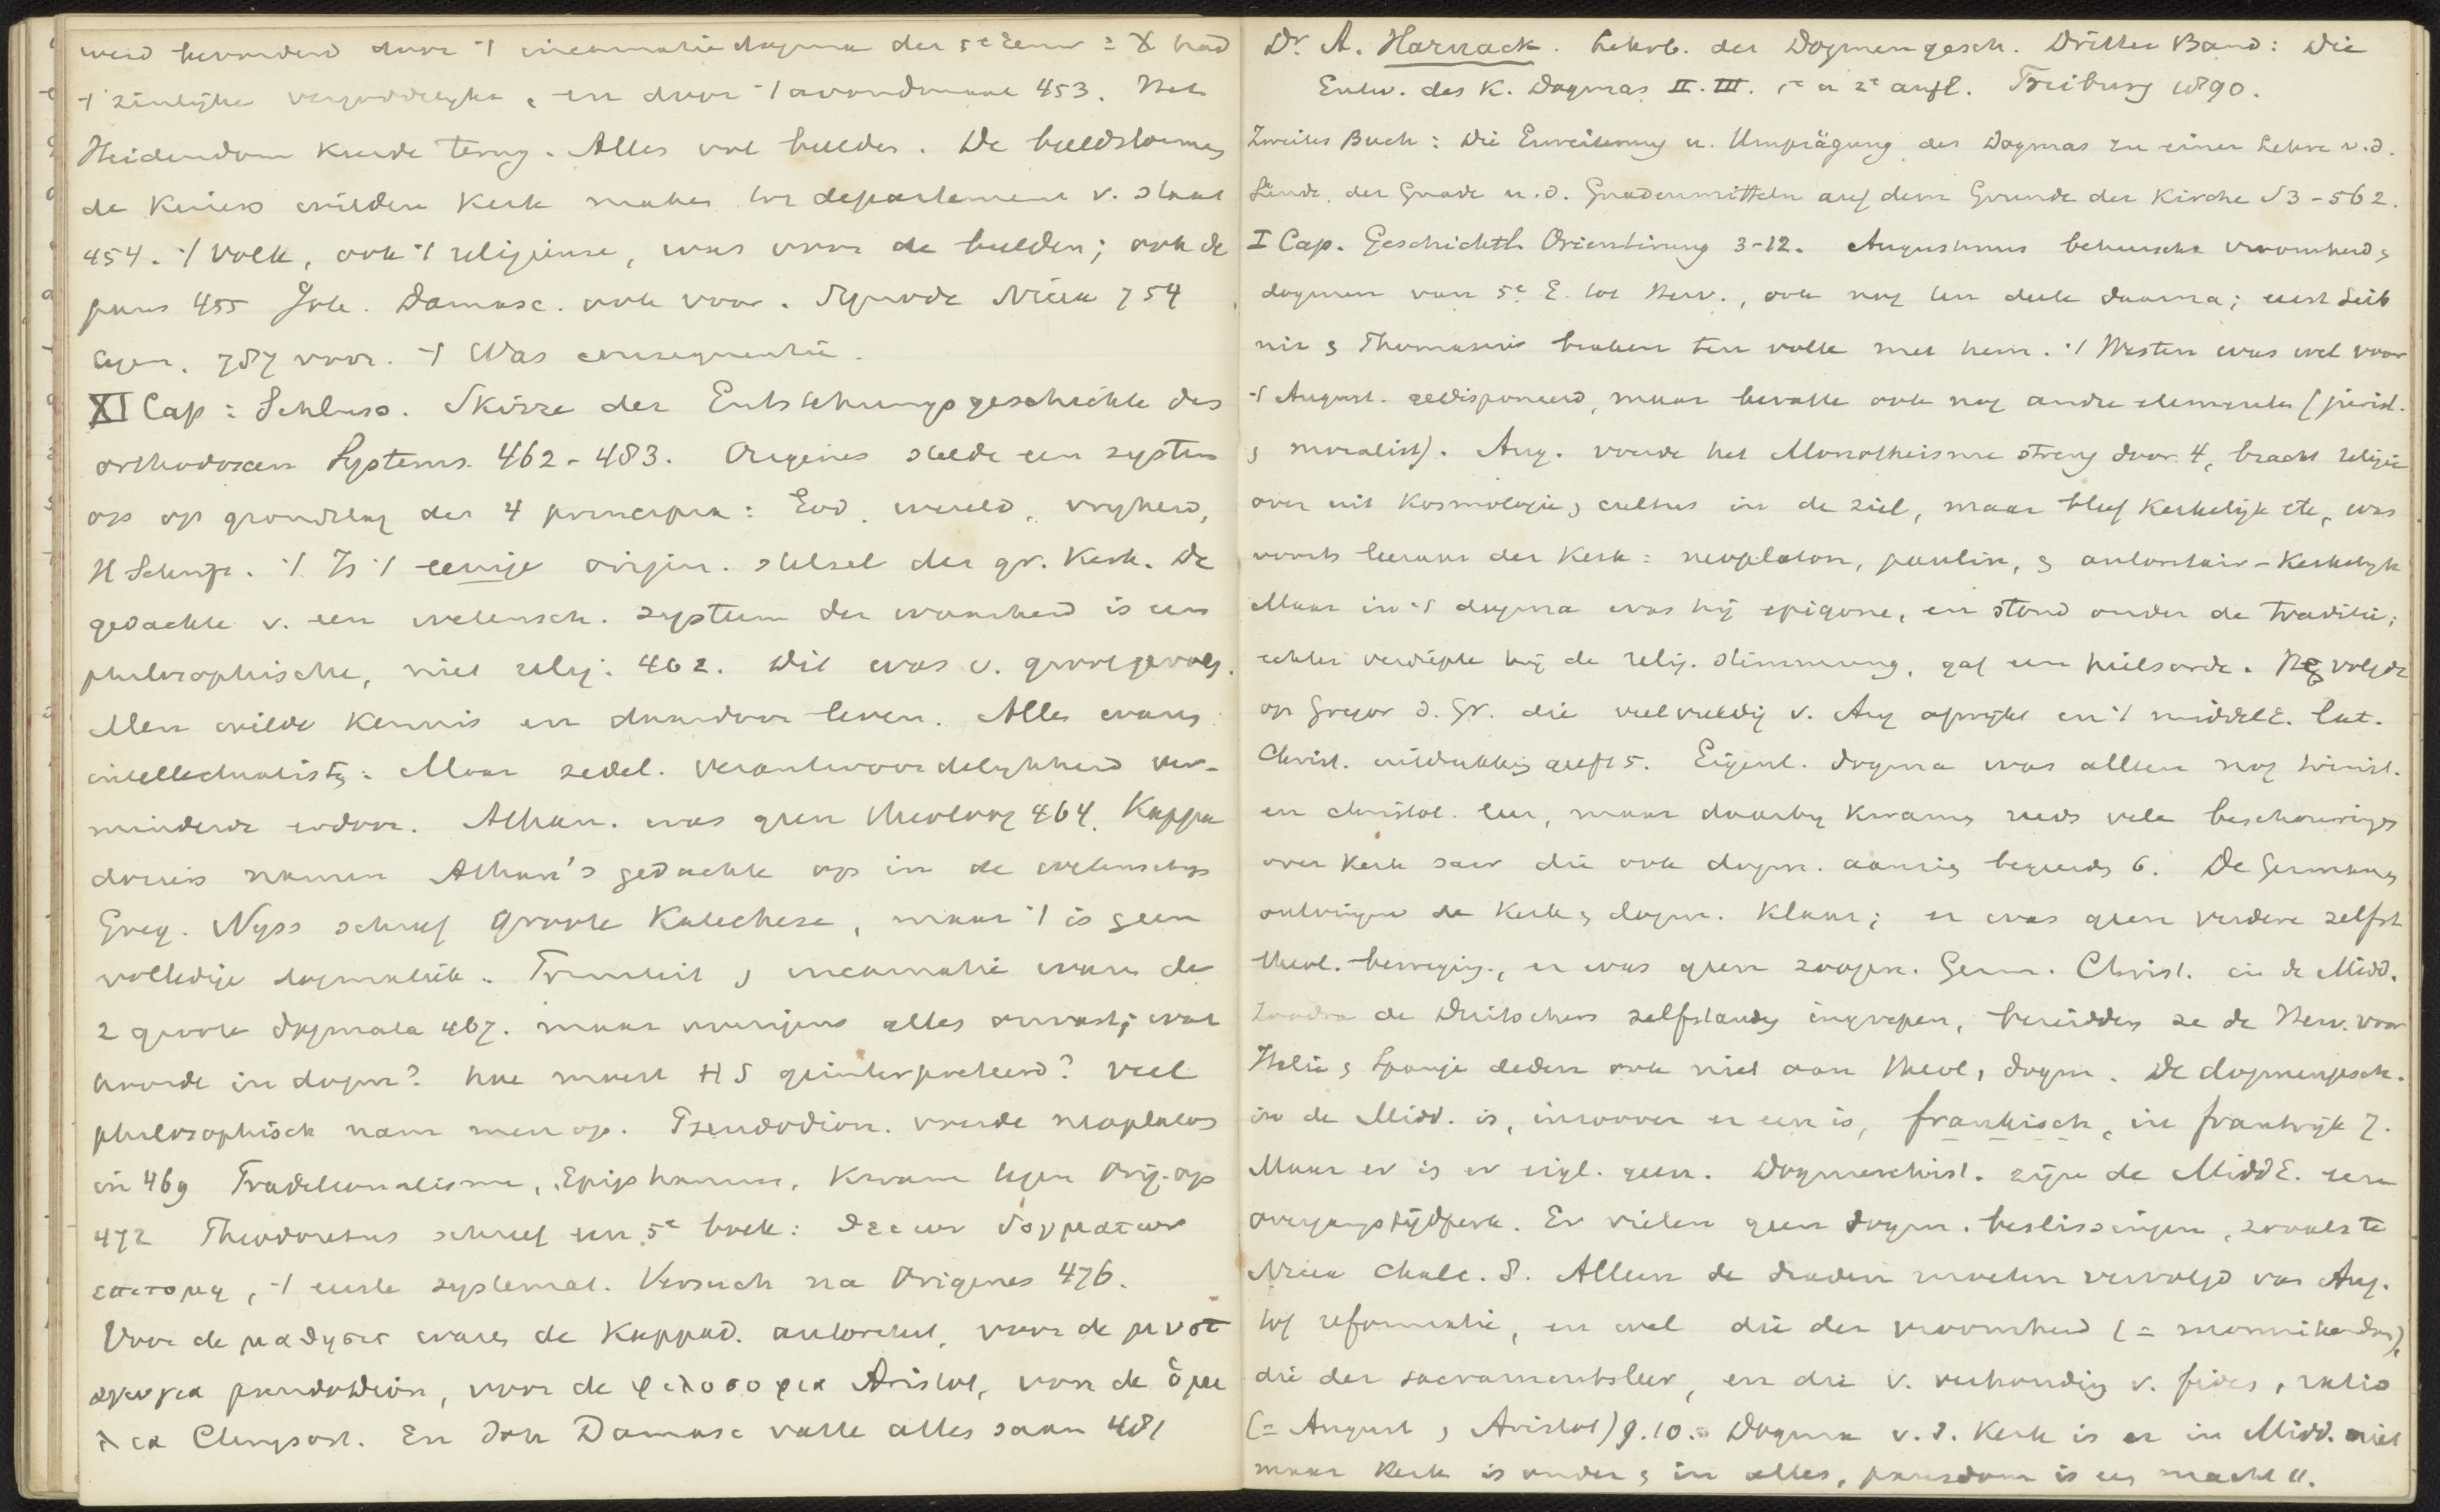 werd bevorderd door 't incarnatiedogma der 5e eeuw = X had
't zinlijke vergoddelijkt, en door 't avondmaal 453. Het
Heidendom keerde terug. Alles vol beelden. De beeldstormers
de keizers wilden kerk maken tot departement v. staat
454. 't volk, ook 't religieuse, was voor de beelden; ook de
paus 455 Joh. Damasc. ook voor. Synode Nicea 754
tegen. 787 voor. 't Was consequentie.
XI Cap: Schluss. Skizze der Entstehungsgeschichte des
orthodoxen Systems. 462-483. Origenes stelde een system
op op grondslag der 4 principia: God, wereld, vryheid,
H Schrift. 't Is 't eenige origin. stelsel der gr. Kerk. De
gedachte v. een wetensch. system der waarheid is een
philosophische, niet relig. 462. Dit was v. groot gevolg.
Men wilde kennis en daardoor leven. Alles waren
intellectualisten. Maar zedel. verantwoordelykheid ver-
minderde erdoor. Athan. was geen theoloog 464. Kappa
dociers namen Athan's gedachte op in de wetenschap
Greg. Nyss schreef groote Katechese, maar 't is geen
volledige dogmatiek. Triniteit , incarnatie waren de
2 groote dogmata 467. maar overigens alles onvast; wat
hoorde in dogm? hoe moest HS geinterpreteerd? Veel
philosophisch nam men op. Pseudodion. voerde neoplaton
in 469 Traditionalisme, Epiphanius, kwam tegen Orig. op
472 Theodoretus schreef een 5e boek: θειων δογματων
επιτομη, 't eerste systemat. Versuch na Origenes 476.
Voor de μαθησις waren de Kappad. autoriteit, voor de μυστ
αγωγια pseudodion, voor de φιλοσοφια Aristot, voor de ὁμι
λια Chrysost. En Joh Damasc vatte alles saam 481
Dr. A. Harnack. Lehrb. der Dogmengesch. Dritter Band: Die
Entw. des K. Dogmas II. III. 1e u 2e aufl. Freiburg 1890.
Zweites Buch: Die Erweiterung u. Umprägung des Dogmas zu einer Lehre v.d.
Sünde, der Gnade u.d. Gnadenmitteln auf dem Grunde der Kirche S 3-562.
I Cap. Geschichtl. Orientirung 3-12. Augustinus beheerscht vroomheid,
dogmen van 5e E. tot Herv., ook nog ten deele daarna; eerst Leib
niz , Thomasius braken ten volle met hem. 't Westen was wel voor
't August. gedisponeerd, maar bevatte ook nog andre elementen (jurist.
, moralist). Aug. voerde het Monotheisme streng door 4, bracht religie
over uit kosmologie, cultus in de ziel, maar bleef kerkelijk etc, was
voorts leeraar der Kerk: neoplaton, paulin, , autoritair-kerkelyk
Maar in 't dogma was hij epigone, en stond onder de traditie;
echter verdiepte hij de relig. stimmung, gaf een heilsorde. Neg volgde
op Gregor d. Gr. die veelvuldig v. Aug afwijkt en 't middelE. lat.
Christ. uitdrukking geeft 5. Eigenl. dogma was alleen nog trinit.
en christol. leer, maar daarby kwamen reeds vele beschouwingen
over kerk sacr die ook dogm. aanzien begeerden 6. De Germanen
ontvingen de kerk, dogm. klaar; er was geen verdere zelfst
theol. beweging, er was geen zoogen. Germ. Christ. in de Midd.
Zoodra de Duitschers zelfstandig ingrepen, bereidden ze de Herv. voor
Italie , Spanje deden ook niet aan theol, dogm. De dogmengesch.
in de Midd. is, inzoover er een is, frankisch, in frankrijk 7.
Maar er is er eigl. geen. Dogmenhist. zijn de MiddE. een
overgangstijdperk. Er vielen geen dogm. beslissingen, zooals te
Nicea Chalc. 8. Alleen de draden moeten vervolgd van Aug.
tot reformatie, en wel die der vroomheid (= monnikendom),
die der sacramentsleer, en die v. verhouding v. fides, ratio
(= August , Aristot) 9.10. Dogma v. d. Kerk is er in Midd. niet
maar Kerk is onder , in alles, pausdom is een macht 11.